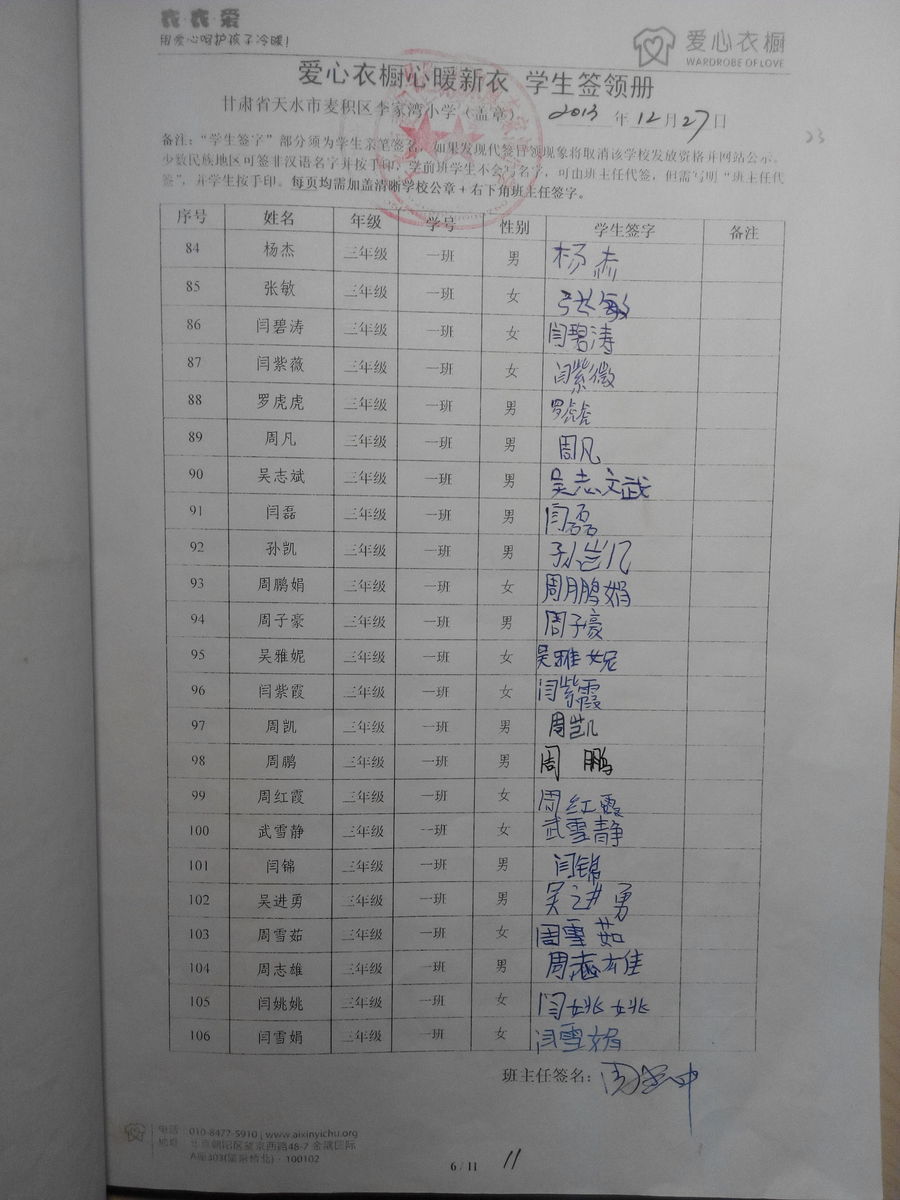 衣·衣·爱
用爱心呵护孩子冷暖！
爱心衣橱
WARDROBE OF LOVE
爱心衣橱心暖新衣 学生签领册
甘肃省天水市麦积区李家湾小学（盖章） 2013 年 12 月 27 日
23
备注：“学生签字”部分须为学生亲笔签名，如果发现代签冒领现象将取消该学校发放资格并网站公示。
少数民族地区可签非汉语名字并按手印。学前班学生不会写名字，可由班主任代签，但需写明“班主任代
签”，并学生按手印。每页均需加盖清晰学校公章+右下角班主任签字。
序号 姓名 年级 学号 性别 学生签字 备注
84 杨杰 三年级 一班 男 杨杰
85 张敏 三年级 一班 女 张敏
86 闫碧涛 三年级 一班 女 闫碧涛
87 闫紫薇 三年级 一班 女 闫紫薇
88 罗虎虎 三年级 一班 男 罗虎虎
89 周凡 三年级 一班 男 周凡
90 吴志斌 三年级 一班 男 吴志斌
91 闫磊 三年级 一班 男 闫磊
92 孙凯 三年级 一班 男 孙凯
93 周鹏娟 三年级 一班 女 周鹏娟
94 周子豪 三年级 一班 男 周子豪
95 吴雅妮 三年级 一班 女 吴雅妮
96 闫紫霞 三年级 一班 女 闫紫霞
97 周凯 三年级 一班 男 周凯
98 周鹏 三年级 一班 男 周 鹏
99 周红霞 三年级 一班 女 周红霞
100 武雪静 三年级 一班 女 武雪静
101 闫锦 三年级 一班 男 闫锦
102 吴进勇 三年级 一班 男 吴进勇
103 周雪茹 三年级 一班 女 周雪茹
104 周志雄 三年级 一班 男 周志雄
105 闫姚姚 三年级 一班 女 闫姚姚
106 闫雪娟 三年级 一班 女 闫雪娟
班主任签名：
电话 010-8477-5910 | www.aixinyichu.org
地址 北京朝阳区望京西路48-7 金隅国际
A座403(望京桥北)·100102
6 / 11 11